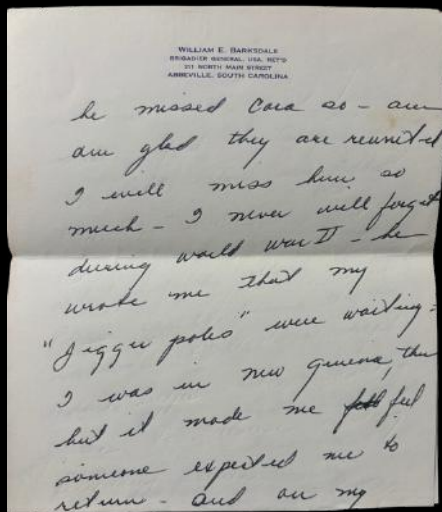 WILLIAM E. BARKSDALE
BRIGADIER GENERAL, USA, RET'D
211 NORTH MAIN STREET
ABBEVILLE, SOUTH CAROLINA
he missed Cora so - am
am glad they are reunited
I will miss him so
much - I never will forget
during world war II - he
wrote me that my
"Jigger poles" were waiting -
I was in new guinea, then
but it made me feel
someone expected me to
return - and on my